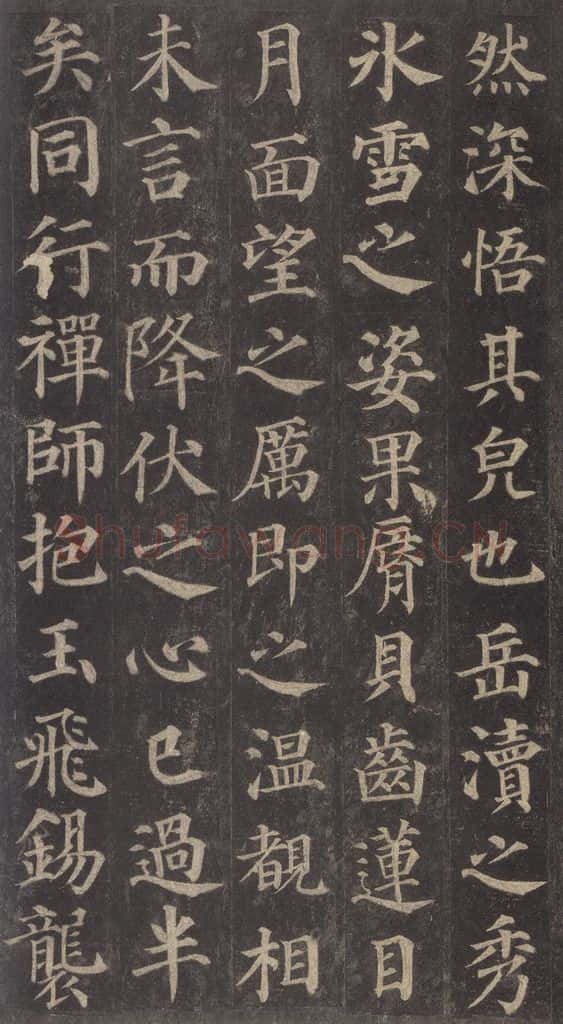 然深悟其皃也岳瀆之秀
氷雪之姿果脣貝齒蓮目
月面望之厲即之温覩相
未言而降伏之心已過半
矣同行禪師抱玉飛錫襲
shufawang.CN